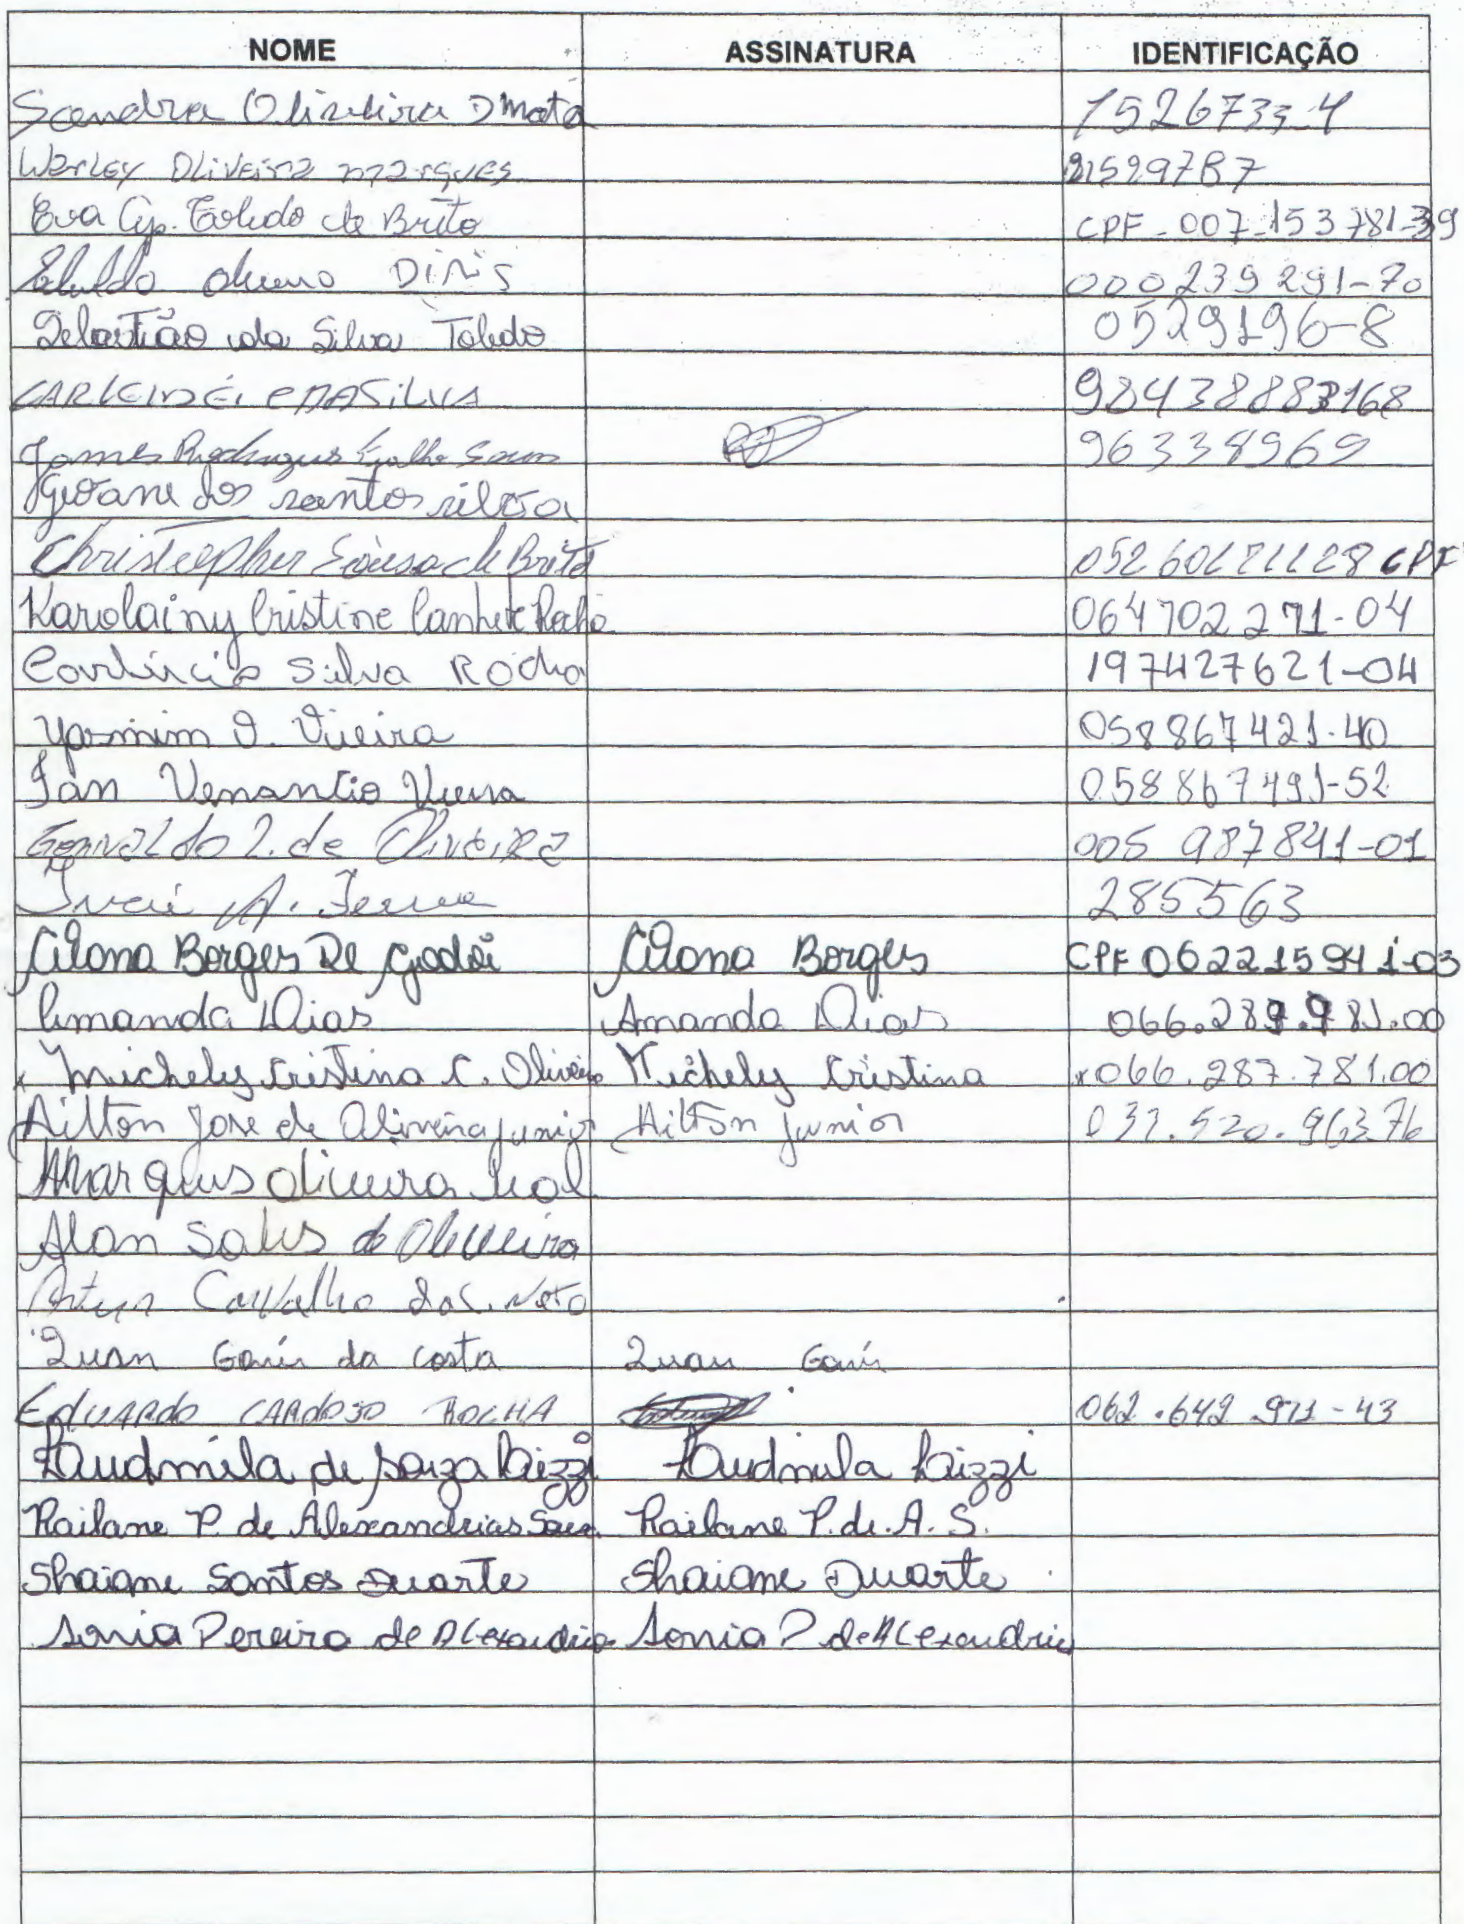 NOME ASSINATURA IDENTIFICAÇÃO
Sandra Oliveira D Mata 1526733-4
Werley Oliveira marques 21529787
Eva Ap. Toledo de Brito CPF-007-153781-39
Dinis 000239291-70
Sebastião da Silva Toledo 0529196-8
98438883168
James Rodrigues 96338969
Geovane dos santos silva
Christopher Sousa de Brito CPF
Karolainy Cristine Canhete Rocha 064702271-04
Silva Rocha 197427621-04
Yasmim O. Vieira 058867421-40
Ian Venancio Vieira 058867491-52
Genivaldo L. de Oliveira 005 987841-01
A. 285563
Borges De Godoi Borges CPF 062215941-03
Amanda Dias Amanda Dias 066.287.981.00
Michely Cristina C. Oliveira Michely Cristina x066.287.781.00
Ailton Jose de Oliveira Junior Ailton Junior 031.520.963.76
Marques Oliveira Leal
Alan Sales de Oliveira
Artur Carvalho da C. Neto
Luan Garis da Costa Luan Garis
Eduardo Cardoso Rocha 062.642.971-43
Ludmila de Souza Rizzi Ludmila Rizzi
Railane P. de Alexandrias Railane P. de. A. S.
Shaiane Santos Duarte Shaiane Duarte
Sonia Pereira de Alexandria Sonia P de Alexandria